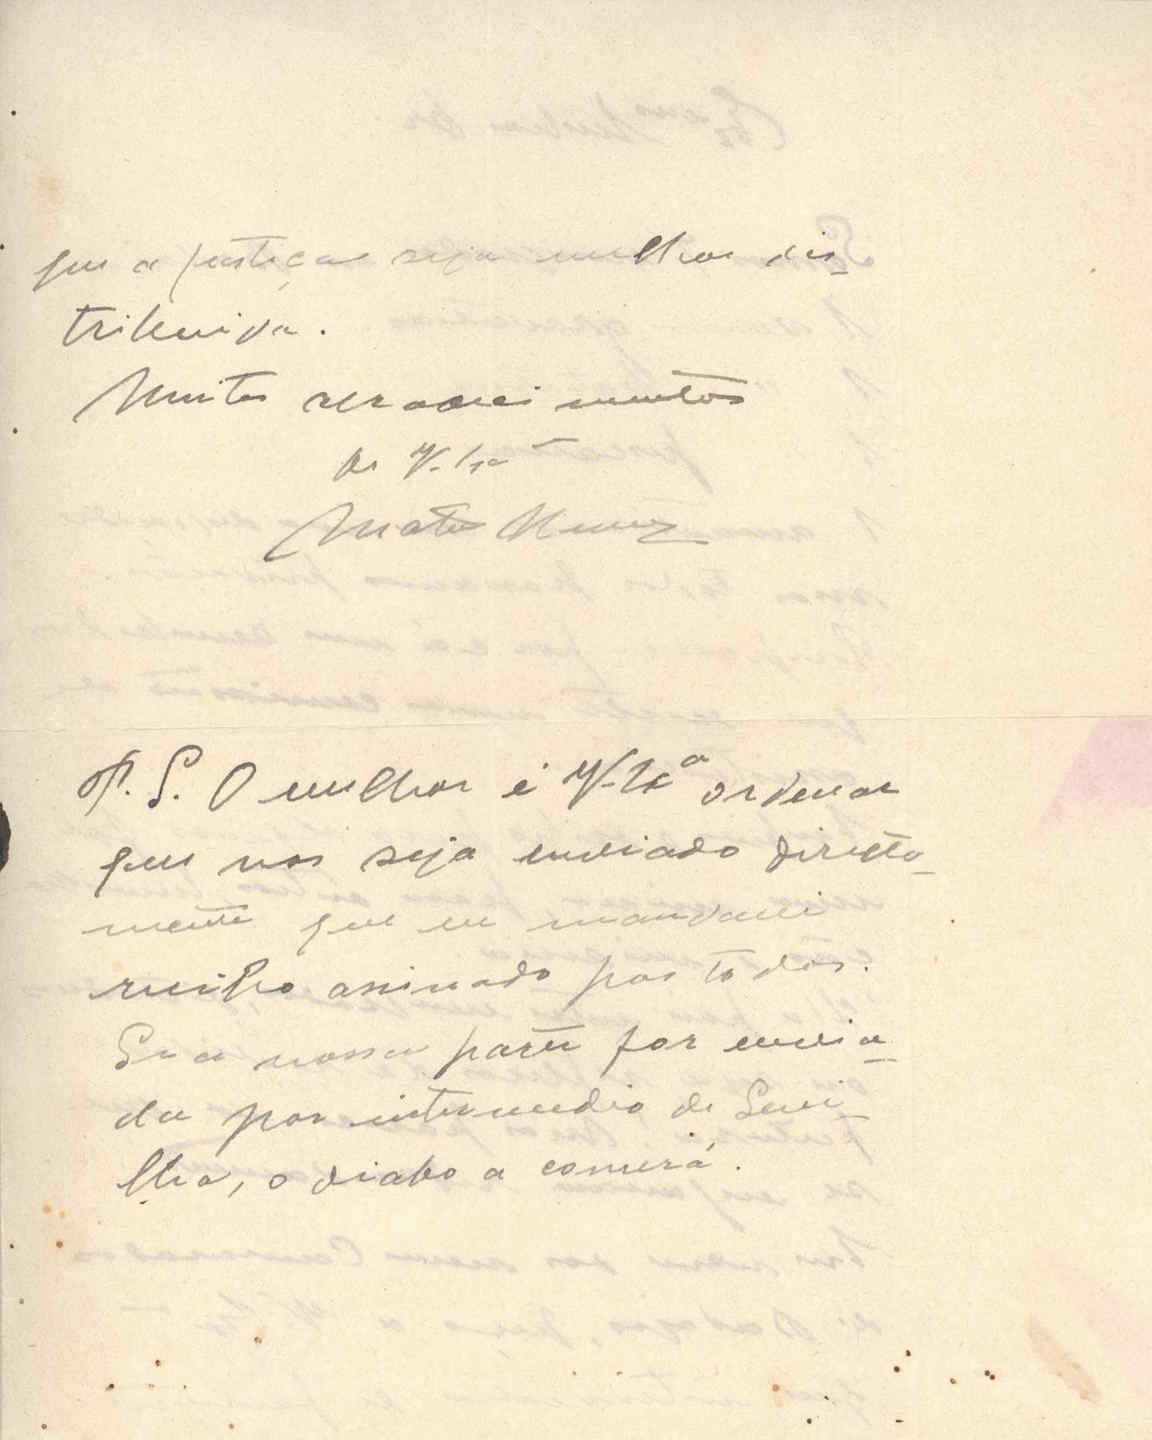 que a justiça seja melhor dis-
tribuida.
Muitos agradecimentos
de V. Exa
P. S. O melhor é V. Exa ordenar
que nos seja enviado directa-
mente que eu mandarei
recibo assinado por todos.
Se a nossa parte for envia-
da por intermedio de Sevi-
lha, o diabo a comerá.